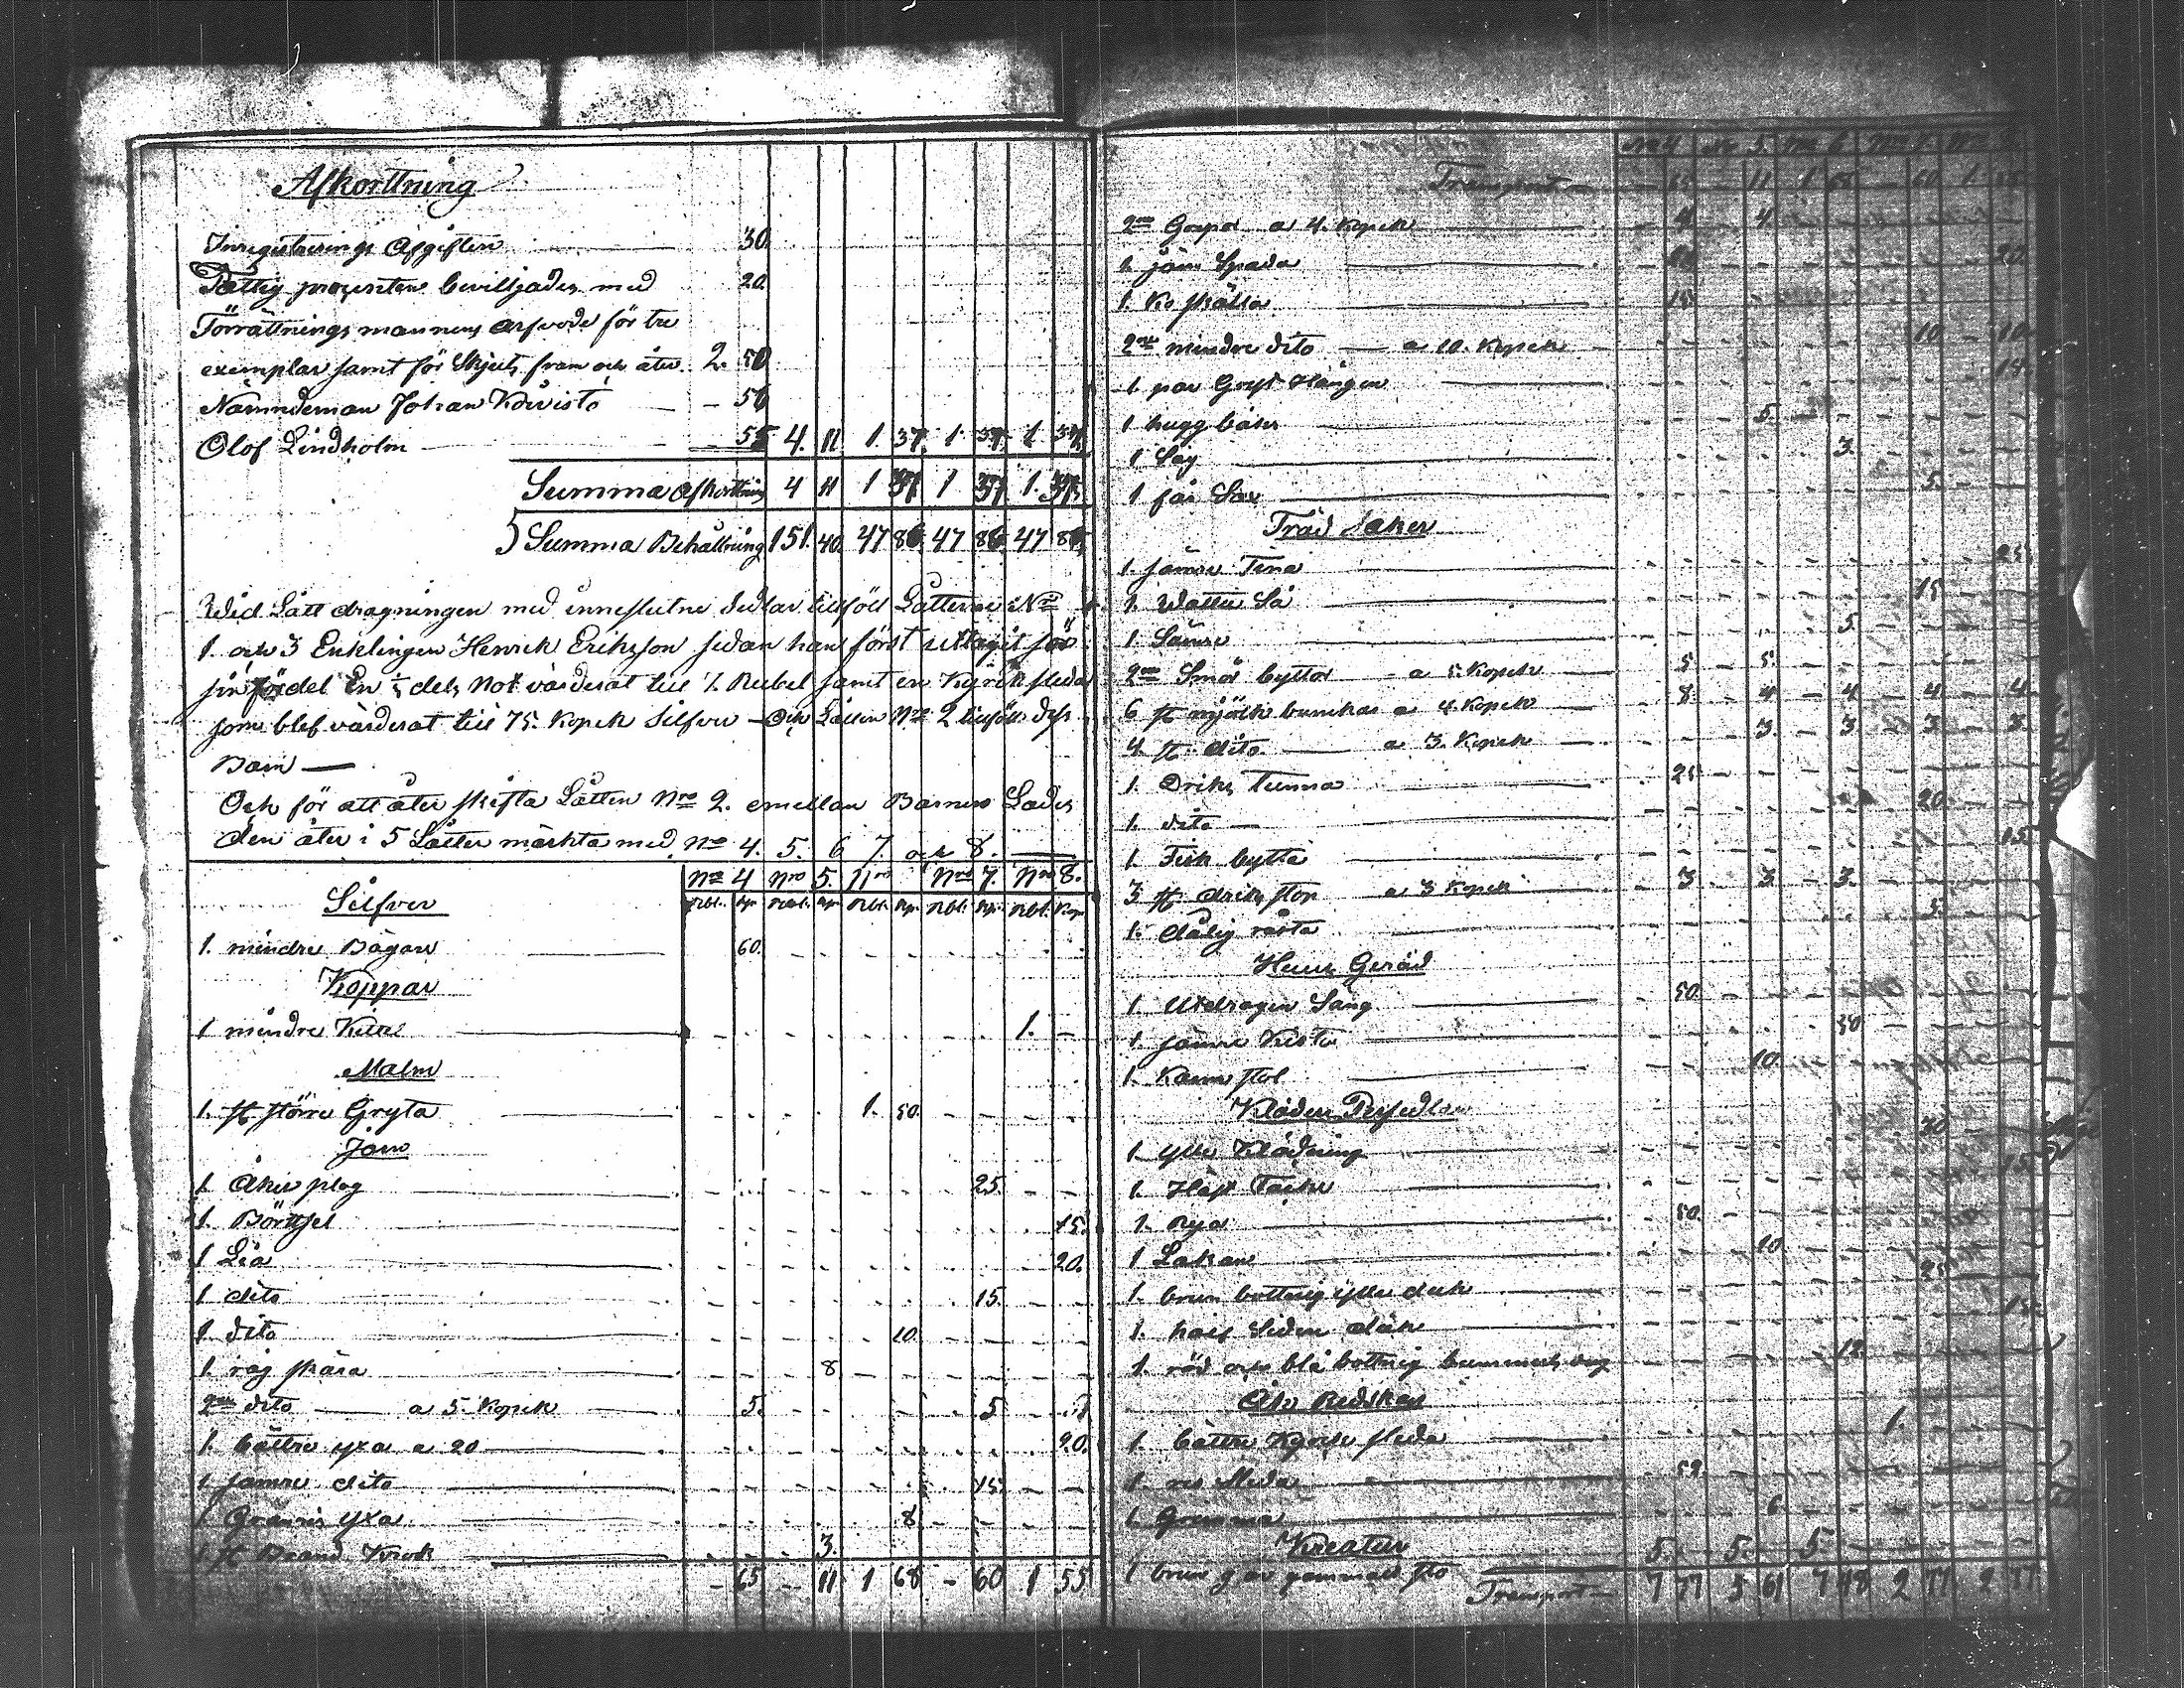 Afkorttning
Inregistrerings Afgiften 30.
Fattig procenten bevilljades med 20.
Förrättnings mannens arfvode för tre
exemplar samt för Skjuts fram och åter. 2. 50
Nämndeman Johan Koivisto — 50
Olof Lindholm — 55 4. 11. 1. 37. 1. 37. 1 37.
Summa Afkorttning 4 11 1 37 1 37 1. 37.
Summa Behållning 151. 40. 47 86. 47 86. 47 86.
Wid Lått dragningen med inneslutne Sedlar tillföll Låtterne No
1. och 3 Enklingen Henrik Eriksson sedan han först uttagit för
sin fördel En ⅓ dels Not värderat till 1. Rubel samt en Kyrck släda
som blef värderat till 75. Kopek Silfver — Och Låtten No 2 tillföll dess
Barn —
Och för att åter skifta Låtten Nro 2. emellan Barnen Lades
den åter i 5 Låtter märkta med No 4. 5. 6 7. och 8.
No 4 Nro 5. Nro Nro 7. Nro 8.
Silfver Rbl. Kp. Rbl. Kp. Rbl. Kp. Rbl. Kp. Rbl. Kop
1. mindre Bägare 60.
Koppar
1 mindre Kittel 1. —
Malm
1. st större Gryta 1. 50.
Jern
1 Åker plog 25.
1. Börttsel 15.
1 Lia 20.
1 dito 15.
1 dito 10.
1. råg skära 8
2ne dito — a 5. Kopek 5. 5
1. bättre yxa a 20 20.
1 sämre dito 15.
1 yxa 8.
1. st Brand Krok 3.
65 11 1 68 — 60 1 55
No 4 No 5. No 6. No 7. N
Transport — 65 — 11 1 68 — 60 1. 55
2ne a 4. Kopek 4 4.
1. jern Spada 20.
1. Ko skälla 15
2ne mindre dito — a 10. Kopek 10 — 10
1. par Gryt Hängen
1 hugg 5.
1 Såg 3.
1 får Sax 5.
Träd Saker
1. sämre Tina 25
1. Watten Så 15
1 Sämre 5.
2ne Små byttor — a 5. Kopek 5 5.
6 st mjölk bunkar a 4. Kopek 8. 4 4 4 4
4. st dito — a 3. Kopek 3. 3 3 3.
1. Dricks tunna 25
1. dito — 20.
1. Fisk bytta 15.
3 st dricks stop a 3 Kopek 3. 3. 3.
1. dålig 5.
Hus Geråd
1. Utdragen Säng 50.
1. sämre Kista 50
1. Karm stol 10.
Kläder Persedlar
1. ylle Klädning 20
1. Häst Täcke 15
1. Rya 50.
1 Lakan 10
1. brun bottnig ylle duk 25
1. half Siden duk 15.
1. röd och blå bottnig bummuls duk 12.
Åk Redskap
1. bättre Kyrck släda 1.
1. Släda
1. Grimma 6
Kreatur 5. 5. 5.
1 brun gammalt sto
Transport — 7 77 5 61 7 48 2 77 2 77